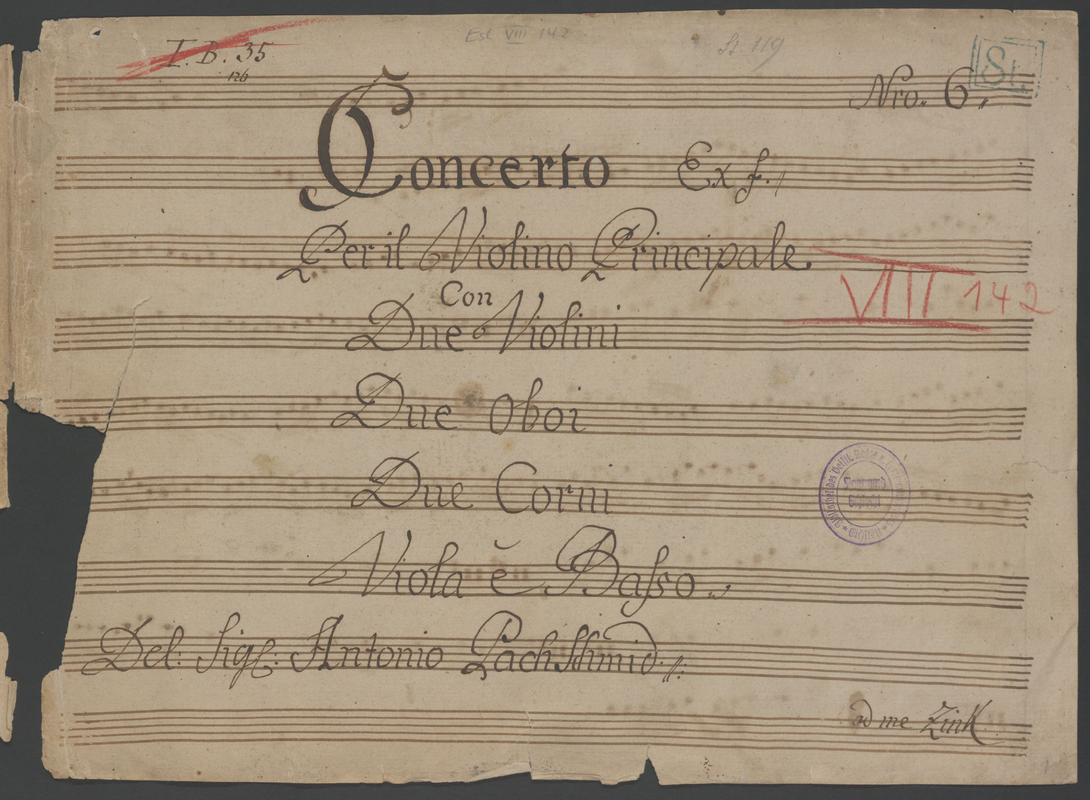 I. B. 35
126
Est VIII 142
St. 119
St.
Nro. 6.
Concerto Ex f.
Per il Violino Principale.
Con
Due Violini
VIII 142
Due Oboi
Due Corni
Viola è Basso.
Del: Sigl: Antonio PachSchmid.
ad me Zink